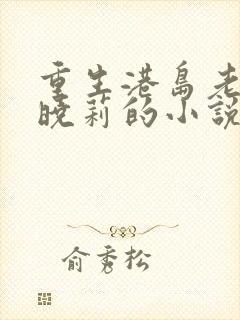 重生港島老
曉莉的小說
俞秀松